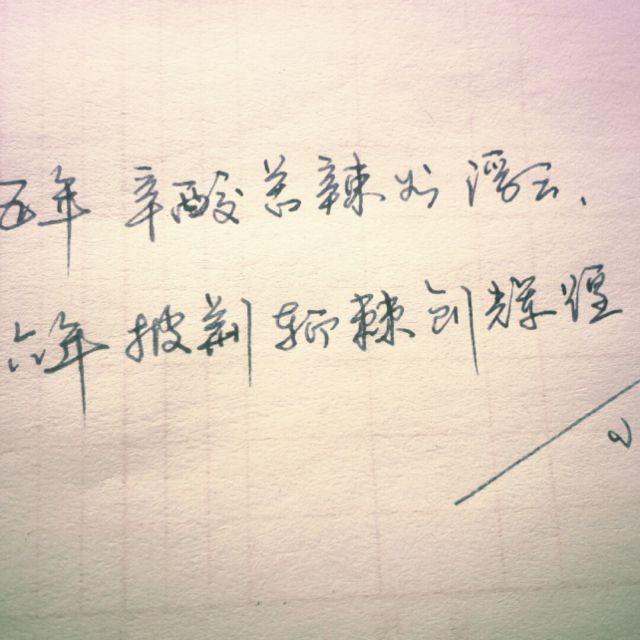 五年 辛酸苦辣如浮云、
六年 披荆斩棘创辉煌